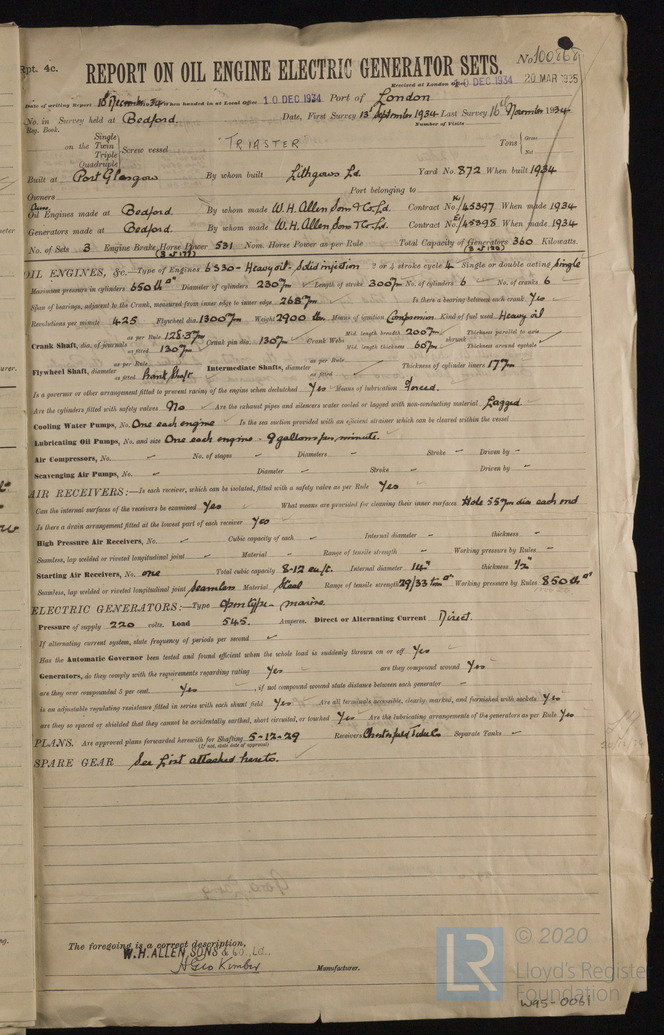 Rpt. 4c.
REPORT ON OIL ENGINE ELECTRIC GENERATOR SETS.
No. 100868
Received at London Office 10 DEC 1934 20 MAR 1935
Date of writing Report 19 When handed in at Local Office 10 DEC 1934 Port of London
No. in Survey held at Bedford. Date, First Survey 13 September 1934 Last Survey 16th November 1934
Reg. Book. Number of Visits
Single
on the Twin
Triple
Quadruple
Screw vessel "TRIASTER" Tons Gross
Net
Built at Port Glasgow By whom built Lithgows Ld. Yard No. 872 When built 1934
Owners Port belonging to
Oil Engines made at Bedford. By whom made W. H. Allen Sons & Co. Ld. Contract No. K1/45397 When made 1934
Generators made at Bedford. By whom made W. H. Allen Sons & Co. Ld. Contract No. E1/45398 When made 1934
No. of Sets 3 Engine Brake Horse Power 531 Nom. Horse Power as per Rule Total Capacity of Generators 360 Kilowatts.
(3 at 177) (3 at 120)
OIL ENGINES, &c.—Type of Engines 6 S30 - Heavy oil - Solid injection 2 or 4 stroke cycle 4 Single or double acting Single
Maximum pressure in cylinders 650 lb □" Diameter of cylinders 230 m/m Length of stroke 300 m/m No. of cylinders 6 No. of cranks 6
Span of bearings, adjacent to the Crank, measured from inner edge to inner edge 268 m/m Is there a bearing between each crank Yes
Revolutions per minute 425 Flywheel dia. 1300 m/m Weight 2900 lbs. Means of ignition Compression Kind of fuel used Heavy oil
Crank Shaft, dia. of journals as per Rule 128.3 m/m Crank pin dia. 130 m/m Crank Webs Mid. length breadth 200 m/m Thickness parallel to axis
as fitted 130 m/m Mid. length thickness 60 m/m shrunk Thickness around eyehole
Flywheel Shaft, diameter as per Rule Intermediate Shafts, diameter as per Rule Thickness of cylinder liners 17 m/m
as fitted Crank Shaft as fitted
Is a governor or other arrangement fitted to prevent racing of the engine when declutched Yes Means of lubrication Forced.
Are the cylinders fitted with safety valves No Are the exhaust pipes and silencers water cooled or lagged with non-conducting material Lagged
Cooling Water Pumps, No. One each engine Is the sea suction provided with an efficient strainer which can be cleared within the vessel
Lubricating Oil Pumps, No. and size One each engine - 9 gallons per minute.
Air Compressors, No. - No. of stages - Diameters - Stroke - Driven by -
Scavenging Air Pumps, No. - Diameter - Stroke - Driven by -
AIR RECEIVERS:—Is each receiver, which can be isolated, fitted with a safety valve as per Rule Yes
Can the internal surfaces of the receivers be examined Yes What means are provided for cleaning their inner surfaces Hole 55 m/m dia each end
Is there a drain arrangement fitted at the lowest part of each receiver Yes
High Pressure Air Receivers, No. - Cubic capacity of each - Internal diameter - thickness -
Seamless, lap welded or riveted longitudinal joint - Material - Range of tensile strength - Working pressure by Rules -
Starting Air Receivers, No. one Total cubic capacity 8.12 cu/ft. Internal diameter 14" thickness ½"
Seamless, lap welded or riveted longitudinal joint Seamless Material Steel Range of tensile strength 29/33 ton □" Working pressure by Rules 850 lb □"
ELECTRIC GENERATORS:—Type Open type - marine.
Pressure of supply 220 volts. Load 545. Amperes. Direct or Alternating Current Direct.
If alternating current system, state frequency of periods per second
Has the Automatic Governor been tested and found efficient when the whole load is suddenly thrown on or off Yes
Generators, do they comply with the requirements regarding rating Yes are they compound wound Yes
are they over compounded 5 per cent. Yes , if not compound wound state distance between each generator
is an adjustable regulating resistance fitted in series with each shunt field Yes Are all terminals accessible, clearly marked, and furnished with sockets Yes
are they so spaced or shielded that they cannot be accidentally earthed, short circuited, or touched Yes Are the lubricating arrangements of the generators as per Rule Yes
PLANS. Are approved plans forwarded herewith for Shafting 5-12-29 Receivers Chesterfield Tube Co Separate Tanks -
(If not, state date of approval)
SPARE GEAR See List attached hereto.
The foregoing is a correct description,
W.H. ALLEN, SONS & Co., Ld.,
H Geo Kimber Manufacturer.
LR
© 2020
Lloyd's Register
Foundation
W95-0061